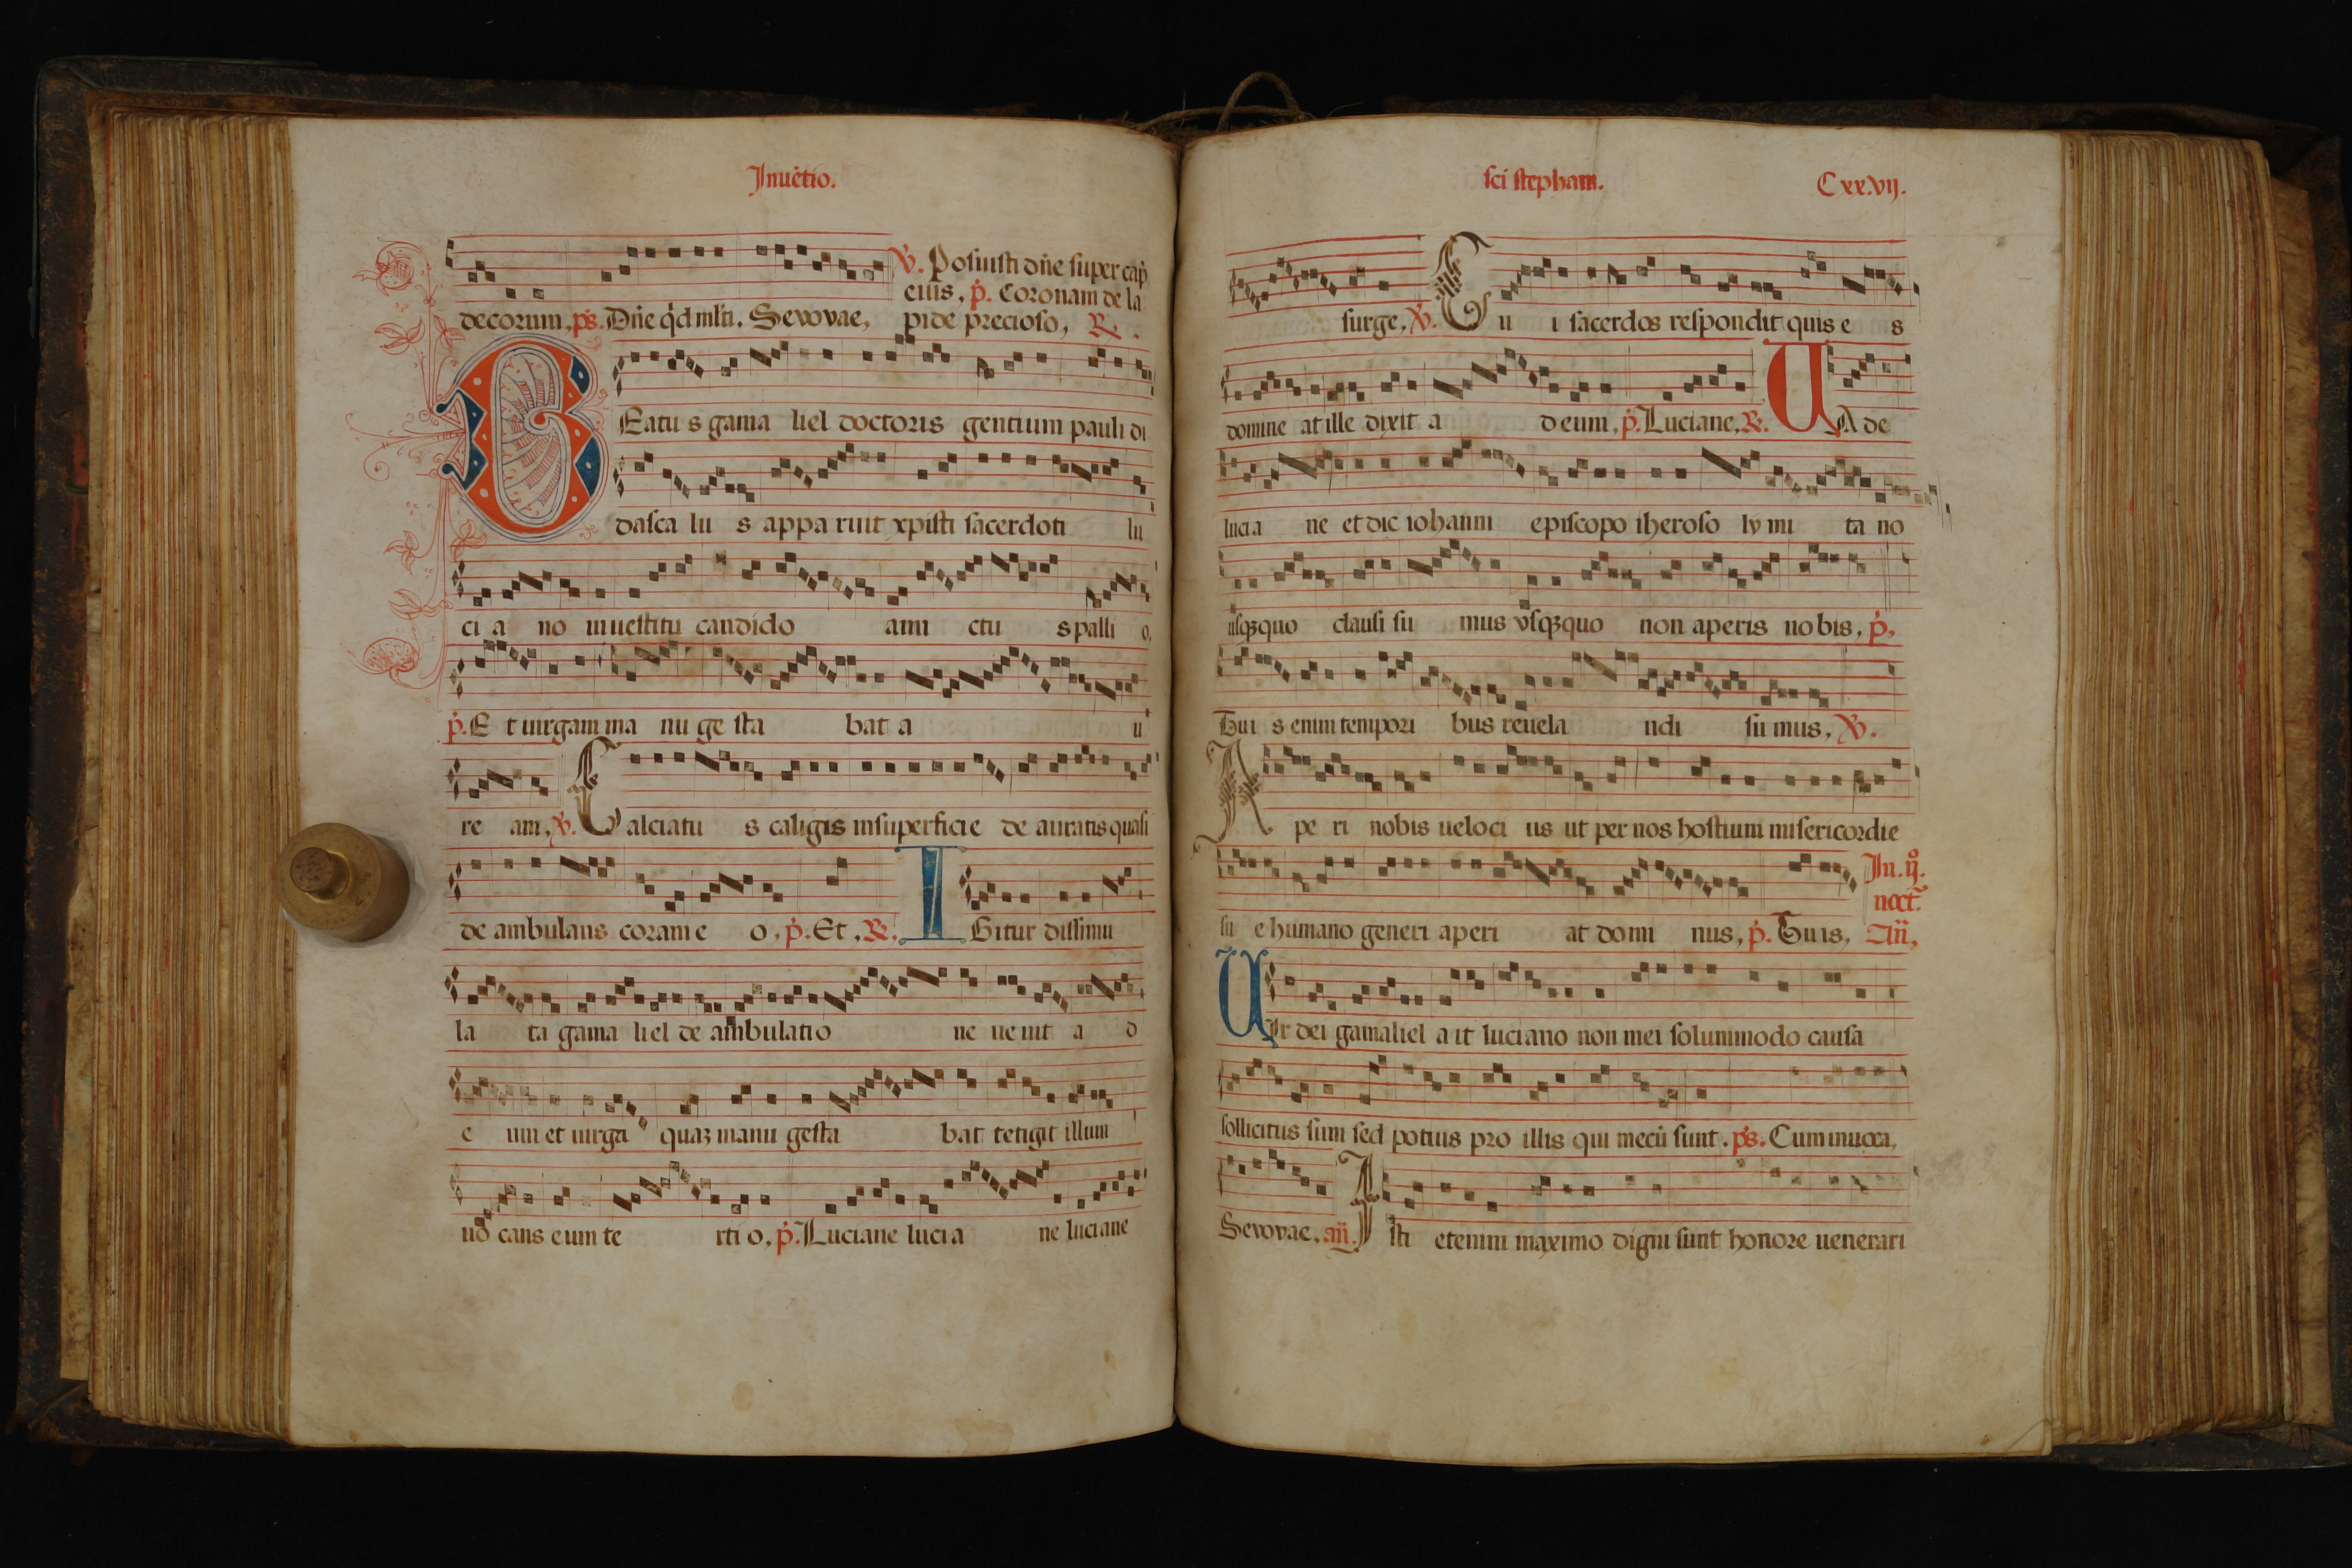 Inuẽtio.
℣. Posuisti dñe super cap̃
eius, p̃. Coronam de la
decorum, ps. Dñe q̃d ml̃ti. Sevovae, pide precioso, ℟.
BEatu s gama liel doctoris gentium pauli di
dasca lu s appa ruit xp̃isti sacerdoti lu
ci a no in uestitu candido ami ctu s palli o,
p̃. E t uirgam ma nu ge sta bat a u
re am, ℣. Calciatu s caligis in superficie de auratis quasi
de ambulans coram e o, p̃. Et, ℟. IGitur dissimu
la ta gama liel de ambulatio ne ue nit a d
e um et uirga quaʒ manu gesta bat tetigit illum
uo cans eum te rti o, p̃. Luciane lucia ne luciane
sci stephani. Cxx.vij.
surge, ℣. Cu i sacerdos respondit quis e s
domine at ille dixit a d eum, p̃. Luciane, ℟. UAde
lucia ne et dic iohanni episcopo iheroso ly mi ta no
usqʒquo clausi su mus vsqʒquo non aperis nobis, p̃,
Tui s enim tempori bus reuela ndi su mus, ℣.
Ape ri nobis ueloci us ut per nos hostium misericordie
In. ij°.
noct̃.
su e humano generi aperi at domi nus, p̃. Tuis, Añ,
UIr dei gamaliel a it luciano non mei solummodo causa
sollicitus sum sed potius pro illis qui mecũ sunt. ps. Cum inuoca,
Sevovae, añ. Isti etenim maximo digni sunt honore uenerari